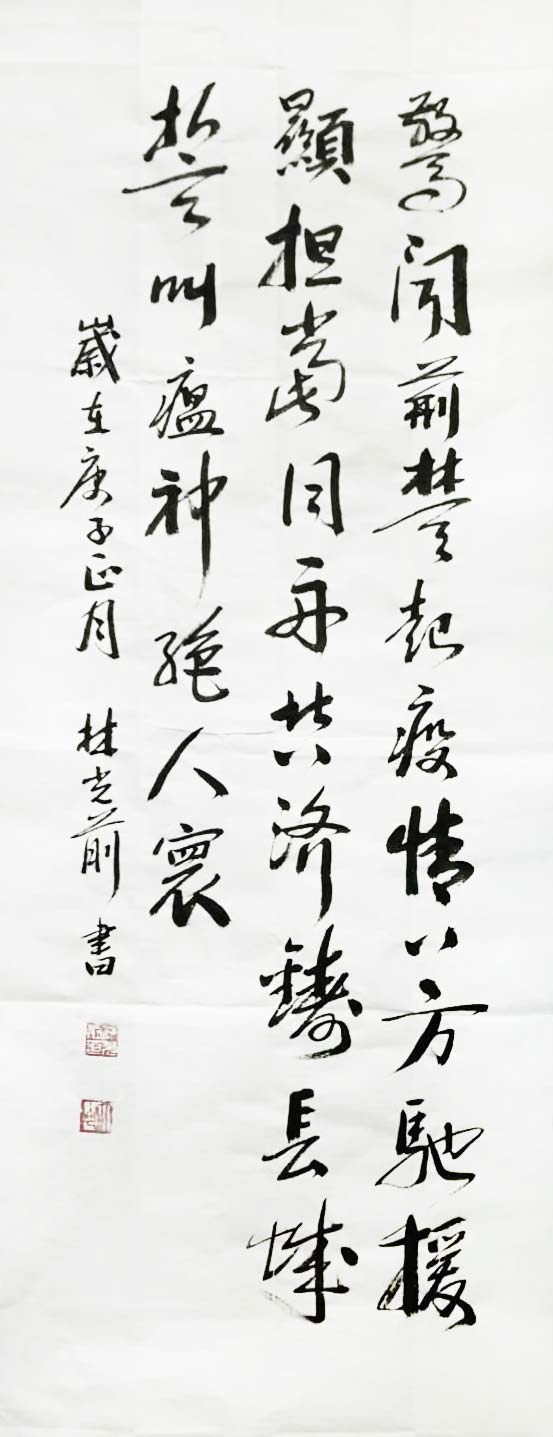 驚聞荊楚起疫情八方馳援
顯担當同舟共濟鑄長城
誓叫瘟神絶人寰
歲在庚子正月 林光前書